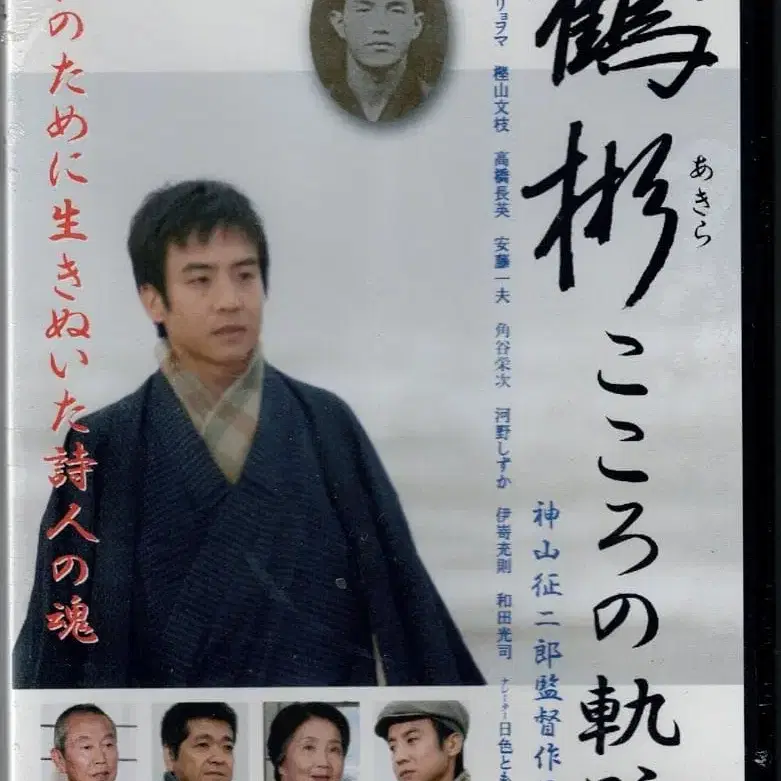 鶴彬
あきら
こころの軌
神山征二郎監督作
リョヲマ 樫山文枝 高橋長英 安藤一夫 角谷栄次 河野しずか 伊嵜充則 和田光司 ナレーター 日色とも
のために生きぬいた詩人の魂